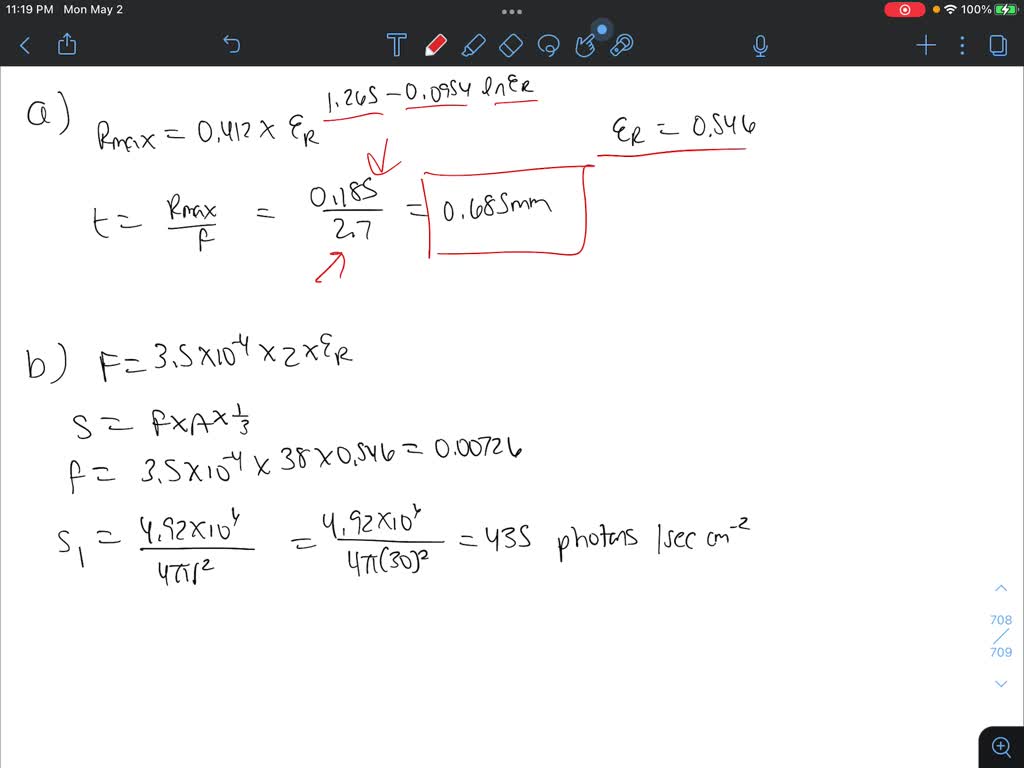 11:19 PM Mon May 2
100%
a) Rmax = 0.412 × ℰR^(1.265 - 0.0954 ln ℰR)
ℰR = 0.546
t = Rmax/ρ = 0.185/2.7 = 0.685mm
b) F = 3.5×10^-4 × Z × ℰR
S = f × A × 1/3
f = 3.5×10^-4 × 38 × 0.546 = 0.00726
S1 = 4.92×10^4/4πr^2 = 4.92×10^4/4π(30)^2 = 435 photons /sec cm^-2
708
709